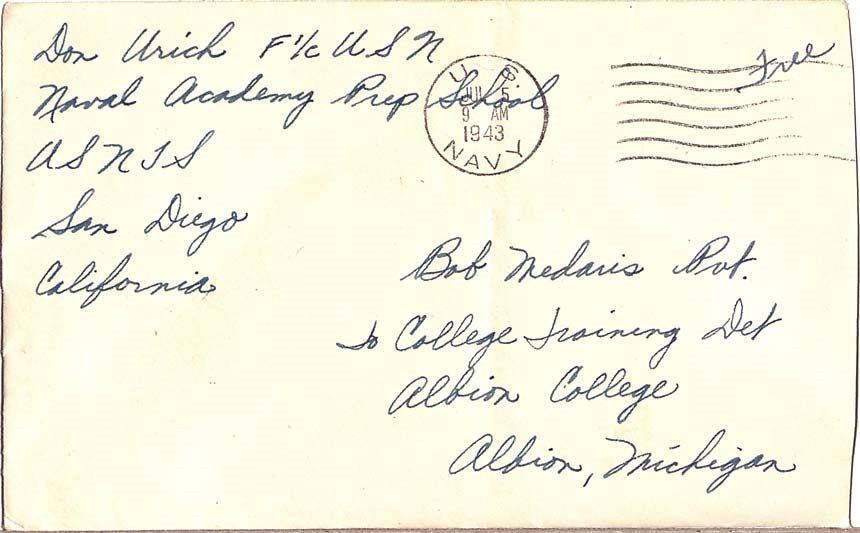 Don Urich F 1/c U S N
Naval Academy Prep School
U S N T S
San Diego
California
U. S.
JUL 5
9 AM
1943
NAVY
Free
Bob Medaris Pvt.
to College Training Det
Albion College
Albion, Michigan